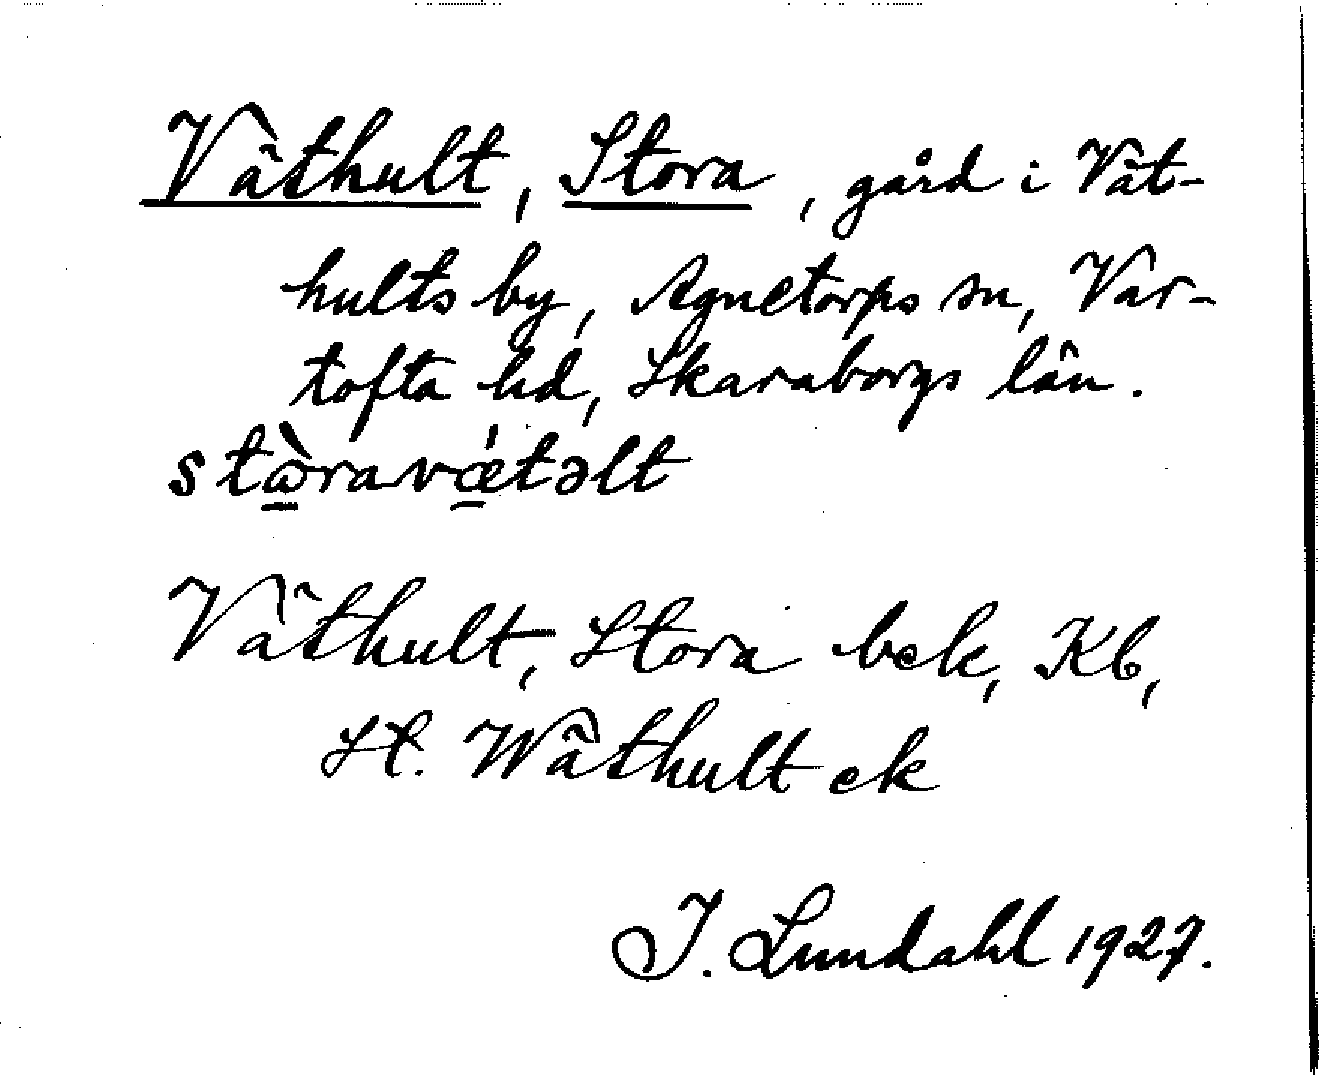 Väthult, Stora, gård i Vät-
hults by, Agnetorps sn, Var-
tofta hd, Skaraborgs län.
stὼ̠ravœ̠́təlt
Väthult, Stora bek, Kb,
St. Wäthult ek
I. Lundahl 1927.